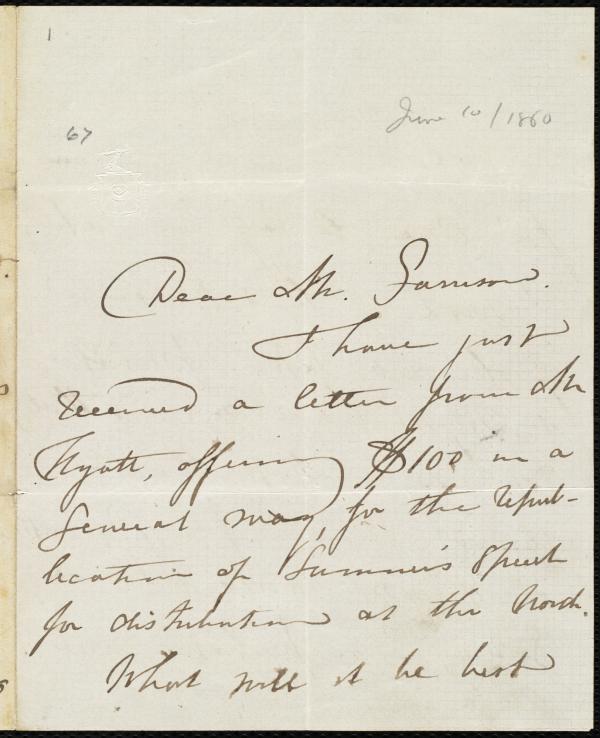 1
June 10/1860
67
Dear Mr. Garrison.
I have just
received a letter from Mr
Hyatt, offering $100 in a
general way, for the repub-
lication of Sumner's Speech
for distribution at the North.
What will it be best